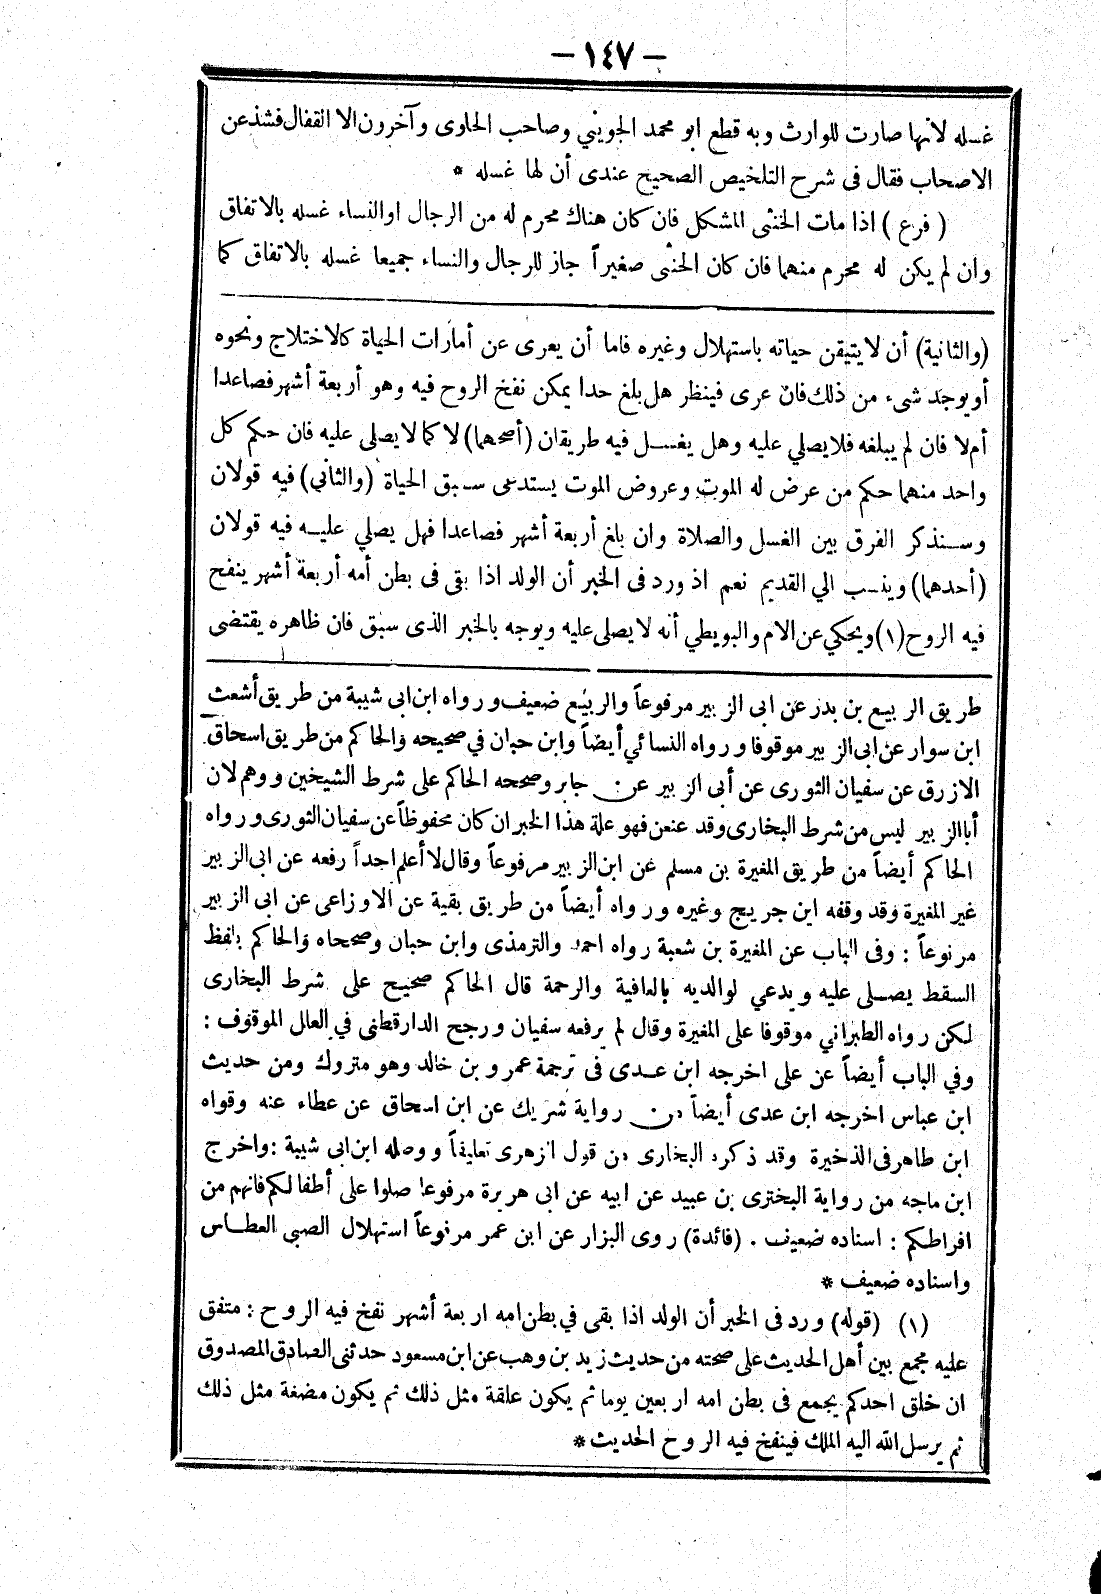 — ١٤٧ —
غسله لأنها صارت للوارث وبه قطع ابو محمد الجويني وصاحب الحاوى وآخرون الا القفال فشذ عن
الاصحاب فقال فى شرح التلخيص الصحيح عندى أن لها غسله *
( فرع ) اذا مات الخنثى المشكل فان كان هناك محرم له من الرجال اوالنساء غسله بالاتفاق
وان لم يكن له محرم منهما فان كان الخنثى صغيراً جاز للرجال والنساء جميعا غسله بالاتفاق كما
(والثانية) أن لا يتيقن حياته باستهلال وغيره فاما أن يعرى عن أمارات الحياة كالاختلاج ونحوه
أو يوجد شىء من ذلك فان عرى فينظر هل بلغ حدا يمكن نفخ الروح فيه وهو أربعة أشهر فصاعدا
أم لا فان لم يبلغه فلا يصلي عليه وهل يغسل فيه طريقان (أصحهما) لا كما لا يصلى عليه فان حكم كل
واحد منهما حكم من عرض له الموت وعروض الموت يستدعى سبق الحياة (والثاني) فيه قولان
وسنذكر الفرق بين الغسل والصلاة وان بلغ أربعة أشهر فصاعدا فهل يصلي عليه فيه قولان
(أحدهما) وينسب الي القديم نعم اذ ورد فى الخبر أن الولد اذا بقى فى بطن أمه أربعة أشهر ينفخ
فيه الروح (١) ويحكي عن الام والبويطي أنه لا يصلى عليه ويوجه بالخبر الذى سبق فان ظاهره يقتضى
طريق الربيع بن بدر عن ابى الزبير مرفوعاً والربيع ضعيف ورواه ابن ابى شيبة من طريق أشعث
ابن سوار عن ابى الزبير موقوفا ورواه النسائي أيضاً وابن حبان في صحيحه والحاكم من طريق اسحاق
الازرق عن سفيان الثورى عن أبى الزبير عن جابر وصححه الحاكم على شرط الشيخين ووهم لان
أبا الزبير ليس من شرط البخارى وقد عنعن فهو علة هذا الخبر ان كان محفوظاً عن سفيان الثورى ورواه
الحاكم أيضاً من طريق المغيرة بن مسلم عن ابن الزبير مرفوعاً وقال لا أعلم احداً رفعه عن ابى الزبير
غير المغيرة وقد وقفه ابن جريج وغيره ورواه أيضاً من طريق بقية عن الاوزاعى عن ابى الزبير
مرفوعاً : وفى الباب عن المغيرة بن شعبة رواه احمد والترمذى وابن حبان وصححاه والحاكم بلفظ
السقط يصلى عليه ويدعي لوالديه بالعافية والرحمة قال الحاكم صحيح على شرط البخارى
لكن رواه الطبراني موقوفا على المغيرة وقال لم يرفعه سفيان ورجح الدارقطنى في العلل الموقوف :
وفي الباب أيضاً عن على اخرجه ابن عدى فى ترجمة عمرو بن خالد وهو متروك ومن حديث
ابن عباس اخرجه ابن عدى أيضاً من رواية شريك عن ابن اسحاق عن عطاء عنه وقواه
ابن طاهر فى الذخيرة وقد ذكره البخارى من قول الزهرى تعليقاً ووصله ابن ابى شيبة : واخرج
ابن ماجه من رواية البخترى بن عبيد عن ابيه عن ابى هريرة مرفوعا صلوا على أطفالكم فانهم من
افراطكم : اسناده ضعيف . (فائدة) روى البزار عن ابن عمر مرفوعاً استهلال الصبي العطاس
واسناده ضعيف *
(١) (قوله) ورد فى الخبر أن الولد اذا بقى في بطن امه اربعة أشهر نفخ فيه الروح : متفق
عليه مجمع بين أهل الحديث على صحته من حديث زيد بن وهب عن ابن مسعود حدثنى الصادق المصدوق
ان خلق احدكم يجمع فى بطن امه اربعين يوما ثم يكون علقة مثل ذلك ثم يكون مضغة مثل ذلك
ثم يرسل الله اليه الملك فينفخ فيه الروح الحديث *